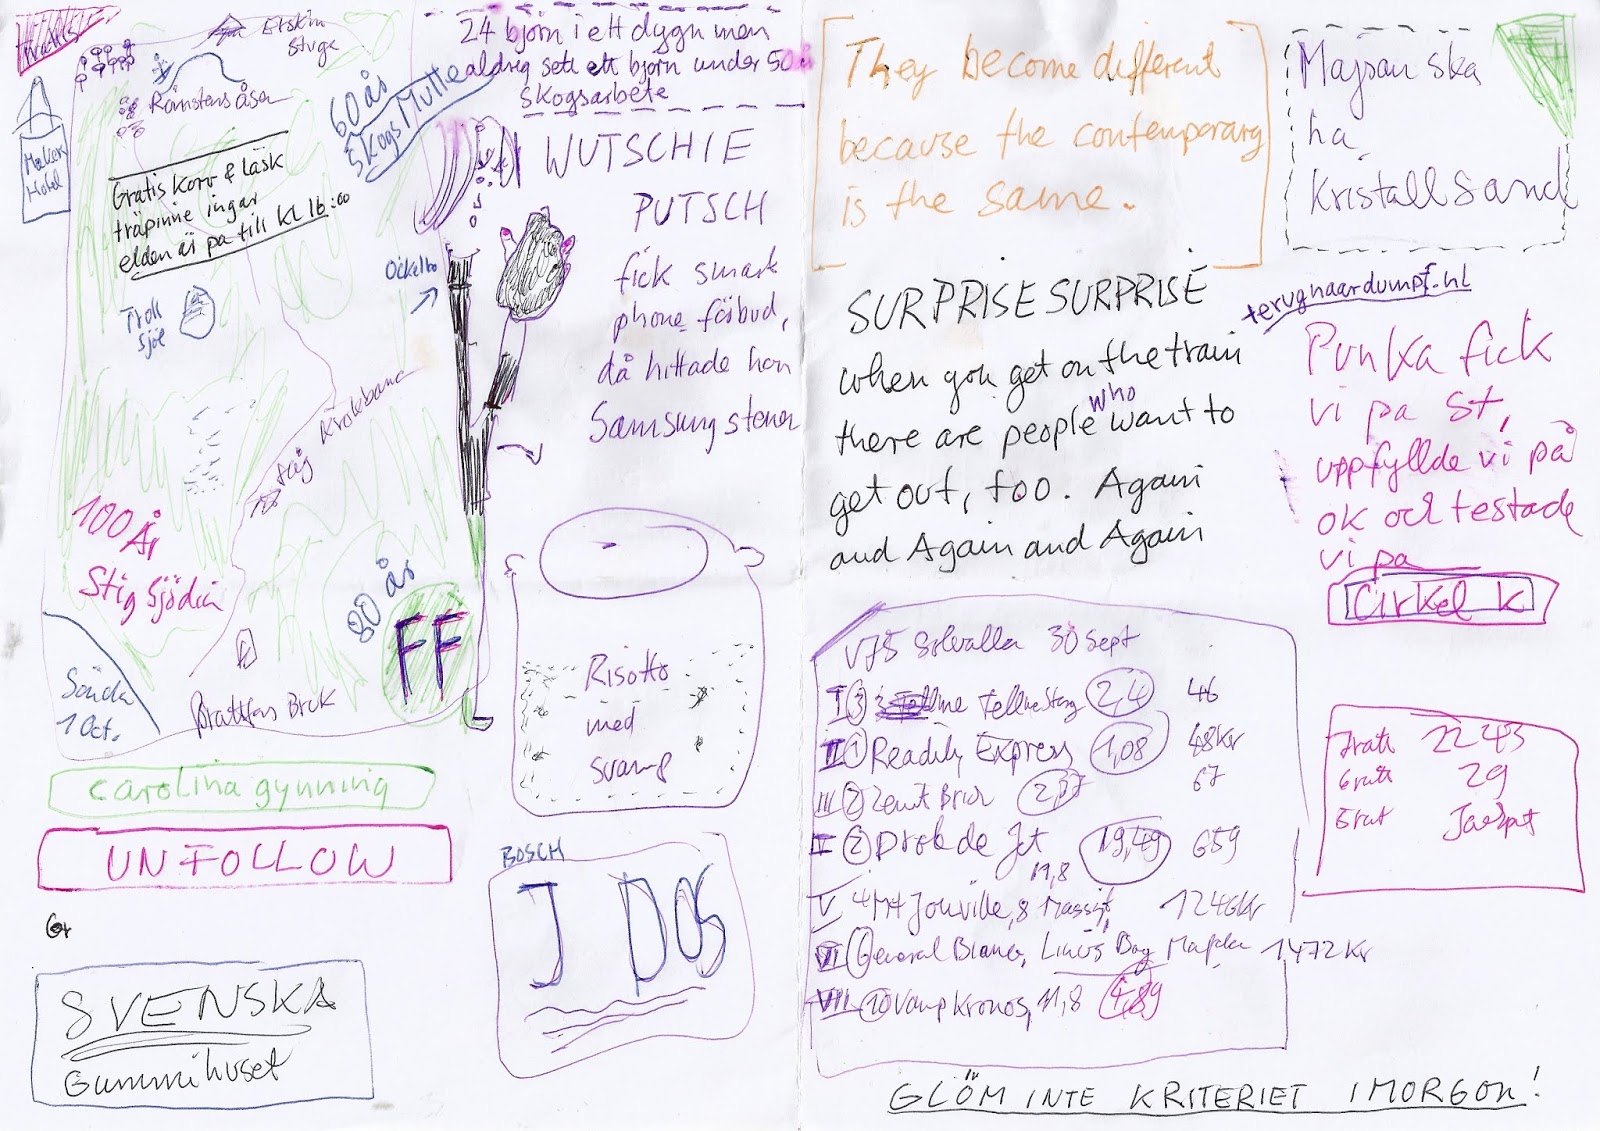 Etskin
stuga
Rönnstensåsen
Maker
Hotel
Gratis korv & läsk
träpinne ingår
elden är på till kl 16:00
60 år
SkogsMulle
24 björn i ett dygn men
aldrig sett ett björn under 50 år
skogsarbete
WUTSCHIE
PUTSCH
fick smart
phone förbud,
då hittade han
Samsung stenen
Ockelbo
Troll
sjöe
tåg Krokbana
100 År
Stig Sjödin
80 år
FF
Söndag
1 Oct.
Brattfors Bruk
carolina gynning
UNFOLLOW
Gr
SVENSKA
Gummihuset
Risotto
med
svamp
BOSCH
J DOS
They become different
because the contemporary
is the same.
Majsan ska
ha
Kristallsand
SURPRISE SURPRISE
when you get on the train
there are people who want to
get out, too. Again
and Again and Again
terugnaardumpf.nl
Punka fick
vi på St,
uppfyllde vi på
OK och testade
vi på
Cirkel K
V75 Solvalla 30 sept
I 3 Tellmestory 2,4 46
II 1 Readily Express 1,08 48kr
III 2 Zenit Brick 2,37 67
IV 2 Prok de Jet 19,49 659
11,8
V 4 M4 Jouville, 8 Massigt, 1246kr
VI General Bianco, Linus Boy 1472 kr
VII 10 Vamp Kronos, 11,8 4,89
Grati 2243
Grati 29
Grat Jackpot
GLÖM INTE KRITERIET IMORGON!